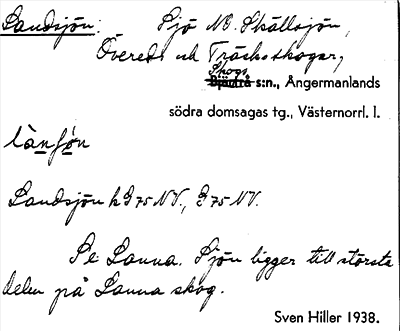 Landsjön: Sjö NO. Skällsjön,
Övereds och Träskskogar,
Skogs
Bjärtrå s:n., Ångermanlands
södra domsagas tg., Västernorrl. l.
lànſǿn
Landsjön k G 75 NV., G 75 NV.
Se Lanna. Sjön ligger till största
delen på Lanna skog.
Sven Hiller 1938.